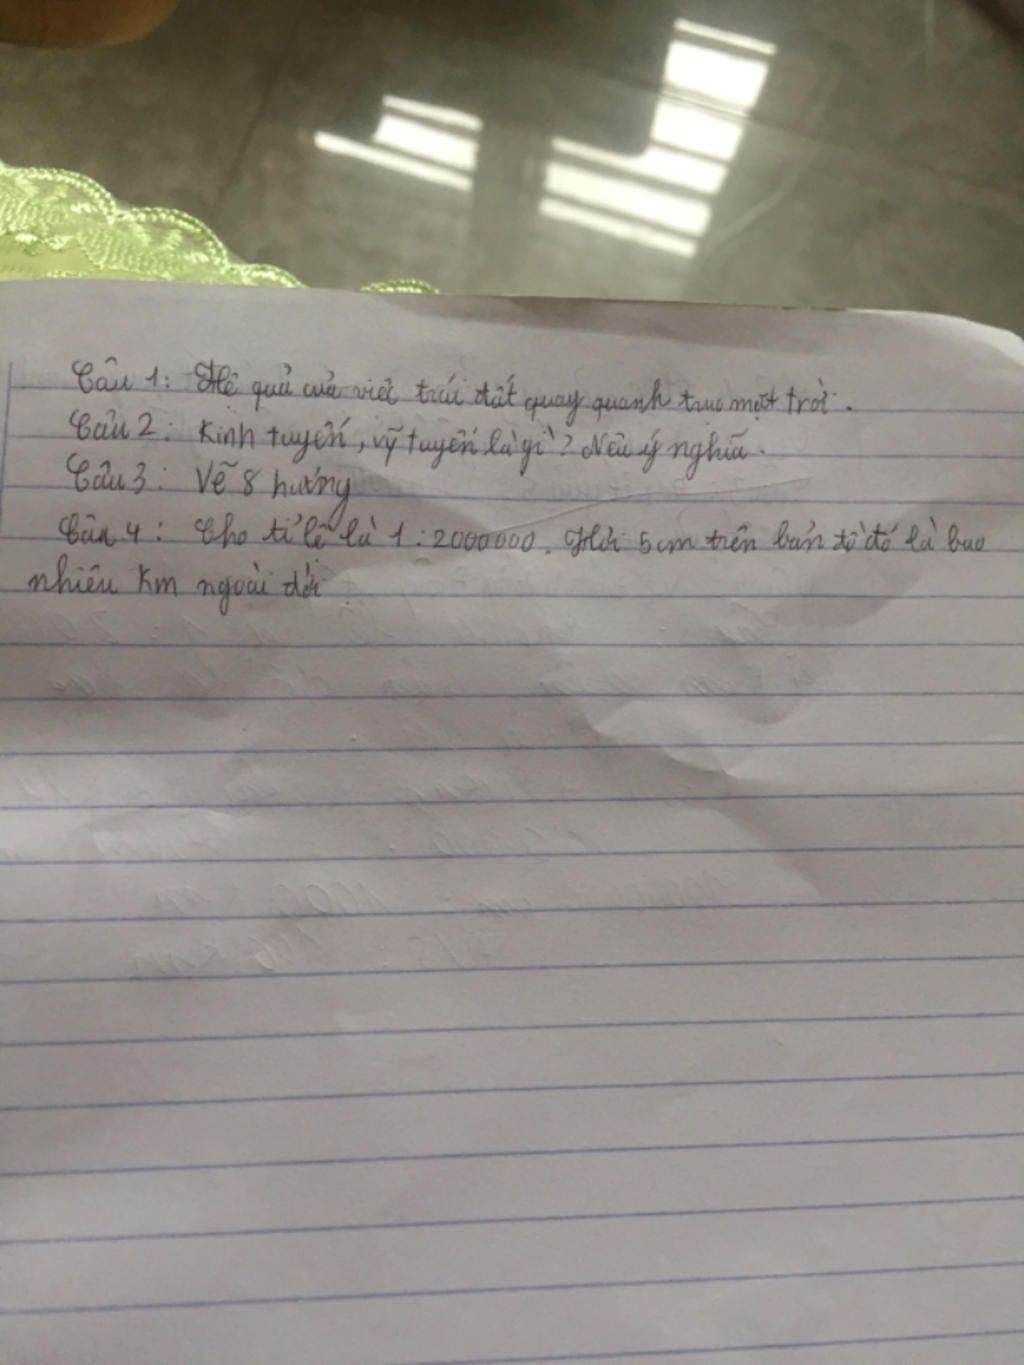 Câu 1: Hệ quả của việc trái đất quay quanh trục mặt trời.
Câu 2: Kinh tuyến, vỹ tuyến là gì? Nêu ý nghĩa.
Câu 3: Vẽ 8 hướng
Câu 4: Cho tỉ lệ là 1:2000000. Hỏi 5cm trên bản đồ đó là bao
nhiêu Km ngoài đời